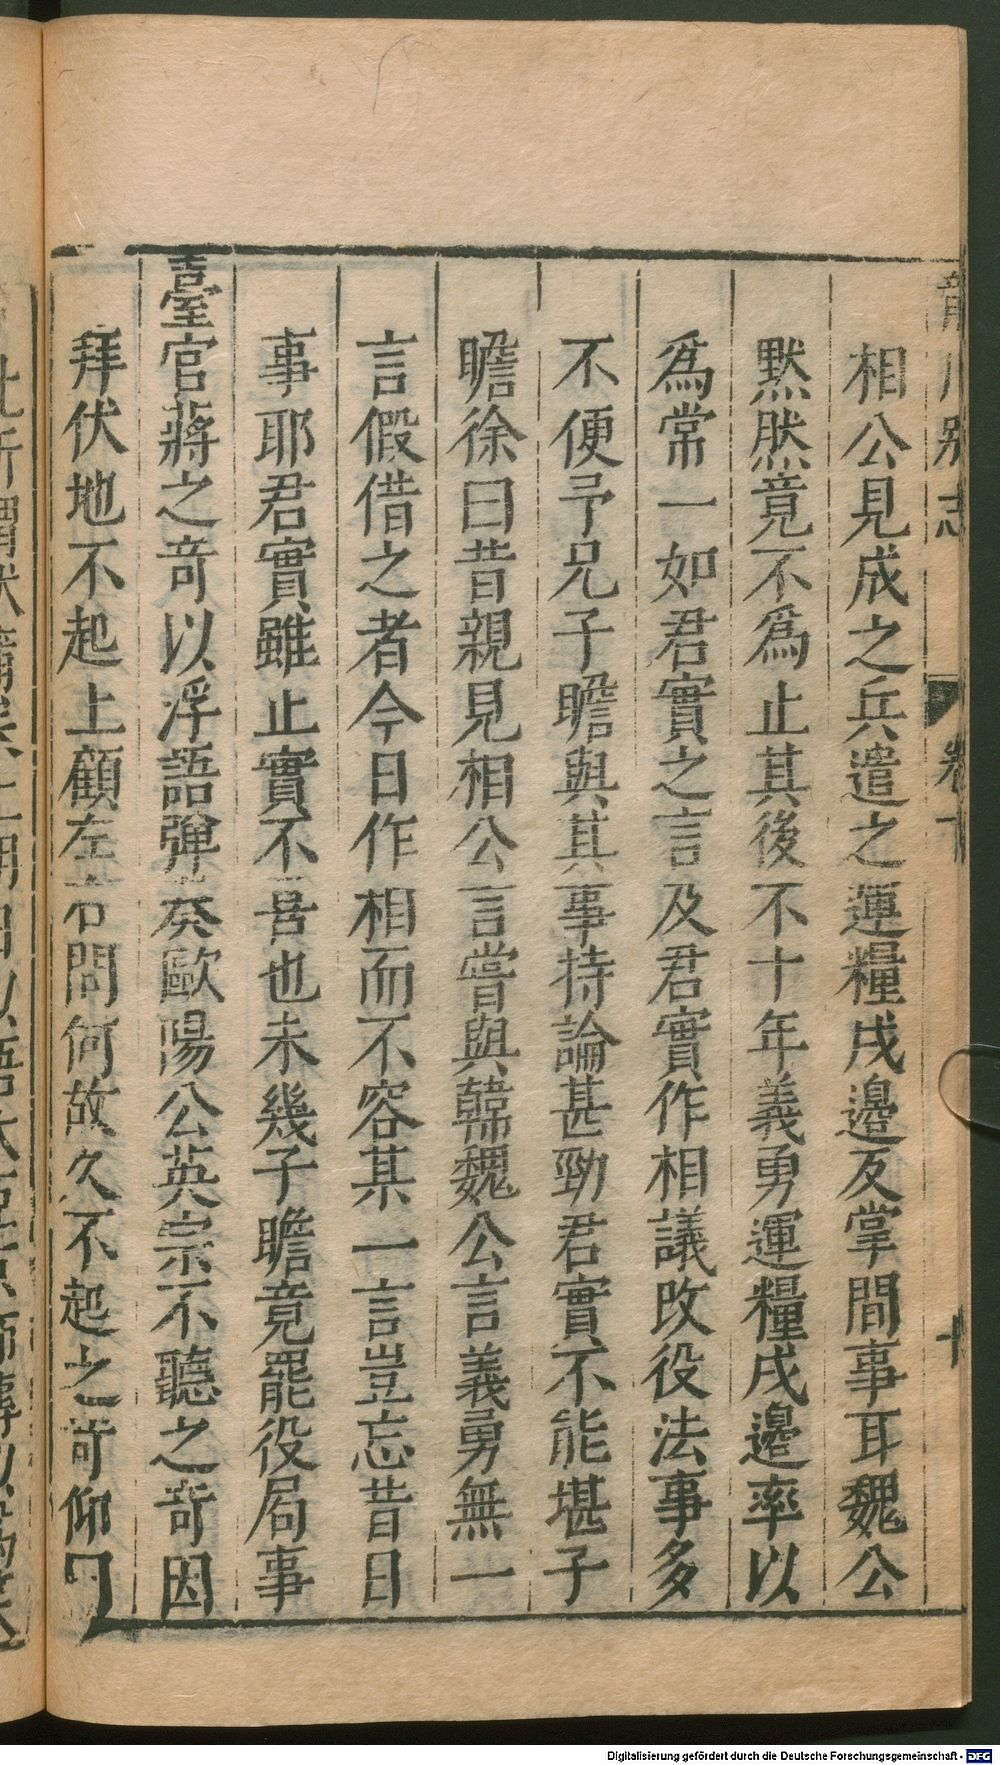 相公見成之兵遣之運糧戍邊反掌間事耳魏公
黙然竟不爲止其後不十年義勇運糧戍邊率以
爲常一如君實之言及君實作相議改役法事多
不便予兄子瞻與其事持論甚勁君實不能堪子
瞻徐曰昔親見相公言嘗與韓魏公言義勇無一
言假借之者今日作相而不容某一言豈忘昔日
事耶君實雖止實不喜也未幾子瞻竟罷役局事
臺官蔣之奇以浮語彈奏歐陽公英宗不聽之奇因
拜伏地不起上顧左右問何故久不起之奇仰曰
龍川别志 卷下 十
Digitalisierung gefördert durch die Deutsche Forschungsgemeinschaft - DFG